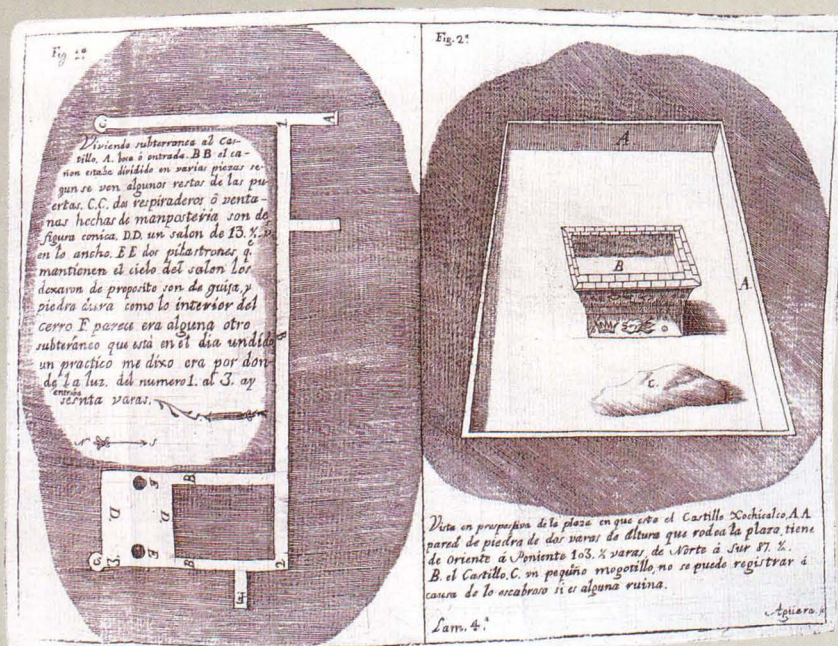 Fig. 1ª
C
2
A
Vivienda subterranea al Cas-
tillo. A. boca ò entrada. B B el ca-
ñon estabe dividido en varias piezas se-
gun se ven algunos restos de las pu-
ertas. C.C. dos respiraderos ò venta-
nas hechas de manposteria son de
figura conica. D.D. un salon de 13. ½. v.
en lo ancho. E E dos pilastrones q.
mantienen el cielo del salon los
dexaron de proposito son de guija, y
piedra dura como lo interior del
cerro F parece era alguna otro
subteraneo que està en el dia undido
un practico me dixo era por don-
de la luz. del numero 1. al 3. ay
entraba
sesnta varas.
N S
B
E
B
D.
D.
E
B
C
3
2
F
Fig. 2ª
A
B
A
C.
Vista en prespestiva de la plaza en que esta el Castillo Xochicalco. A.A.
pared de piedra de dos varas de altura que rodea la plaza, tiene
de Oriente á Poniente 103. ½ varas, de Norte á Sur 87. ½.
B. el Castillo. C. vn pequño mogotillo, no se puede registrar á
causa de lo escabroso si es alguna ruina.
Agüera.
Lam. 4.ª